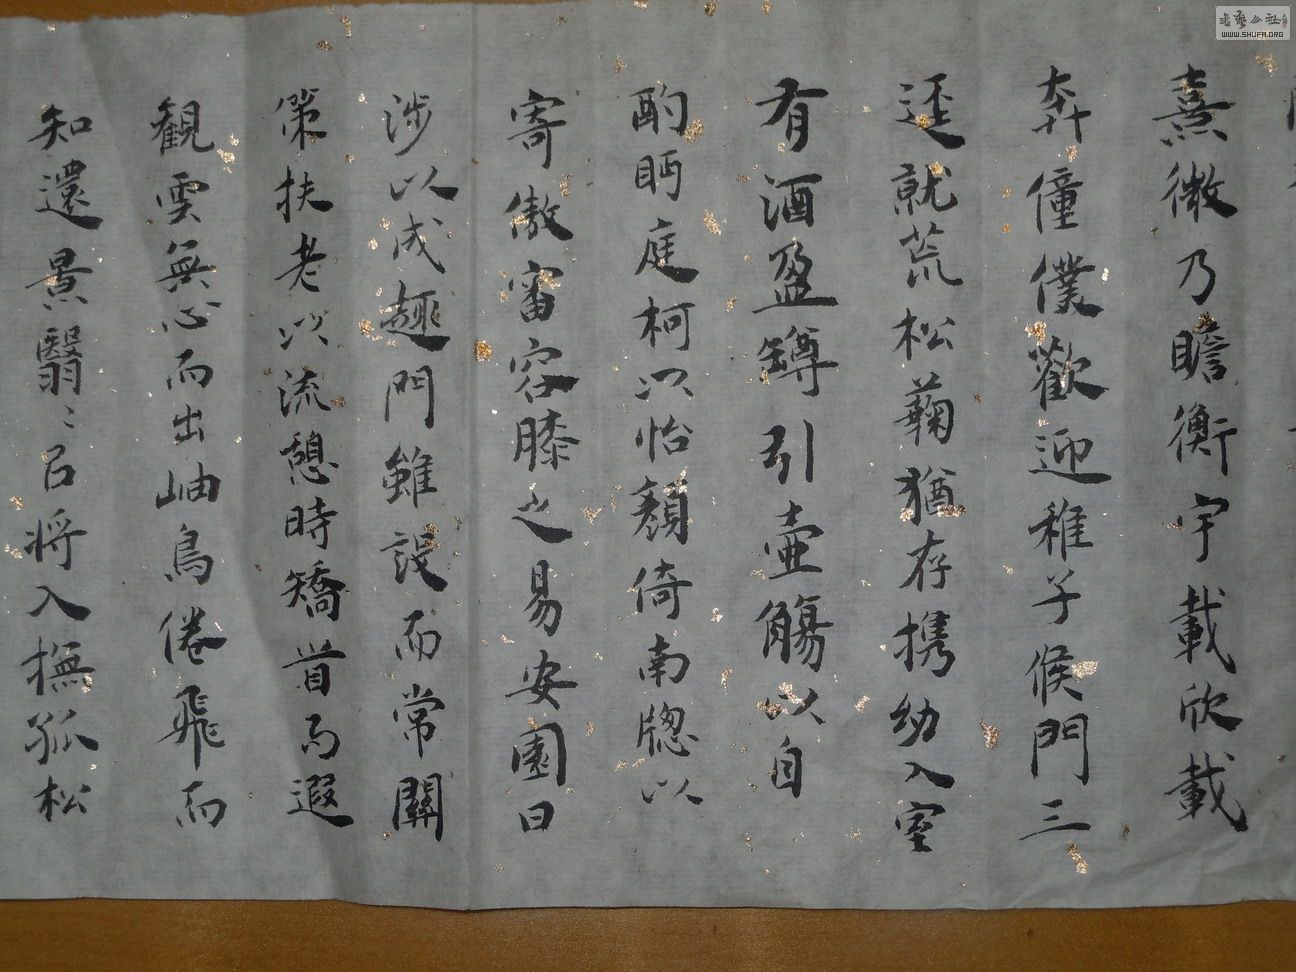 熹微乃瞻衡宇載欣載
奔僮僕歡迎稚子候門三
逕就荒松菊猶存攜幼入室
有酒盈罇引壺觴以自
酌眄庭柯以怡顏倚南牕以
寄傲審容膝之易安園日
涉以成趣門雖設而常關
策扶老以流憩時矯首而遐
觀雲無心而出岫鳥倦飛而
知還景翳〻以將入撫孤松
書藝公社
WWW.SHUFA.ORG